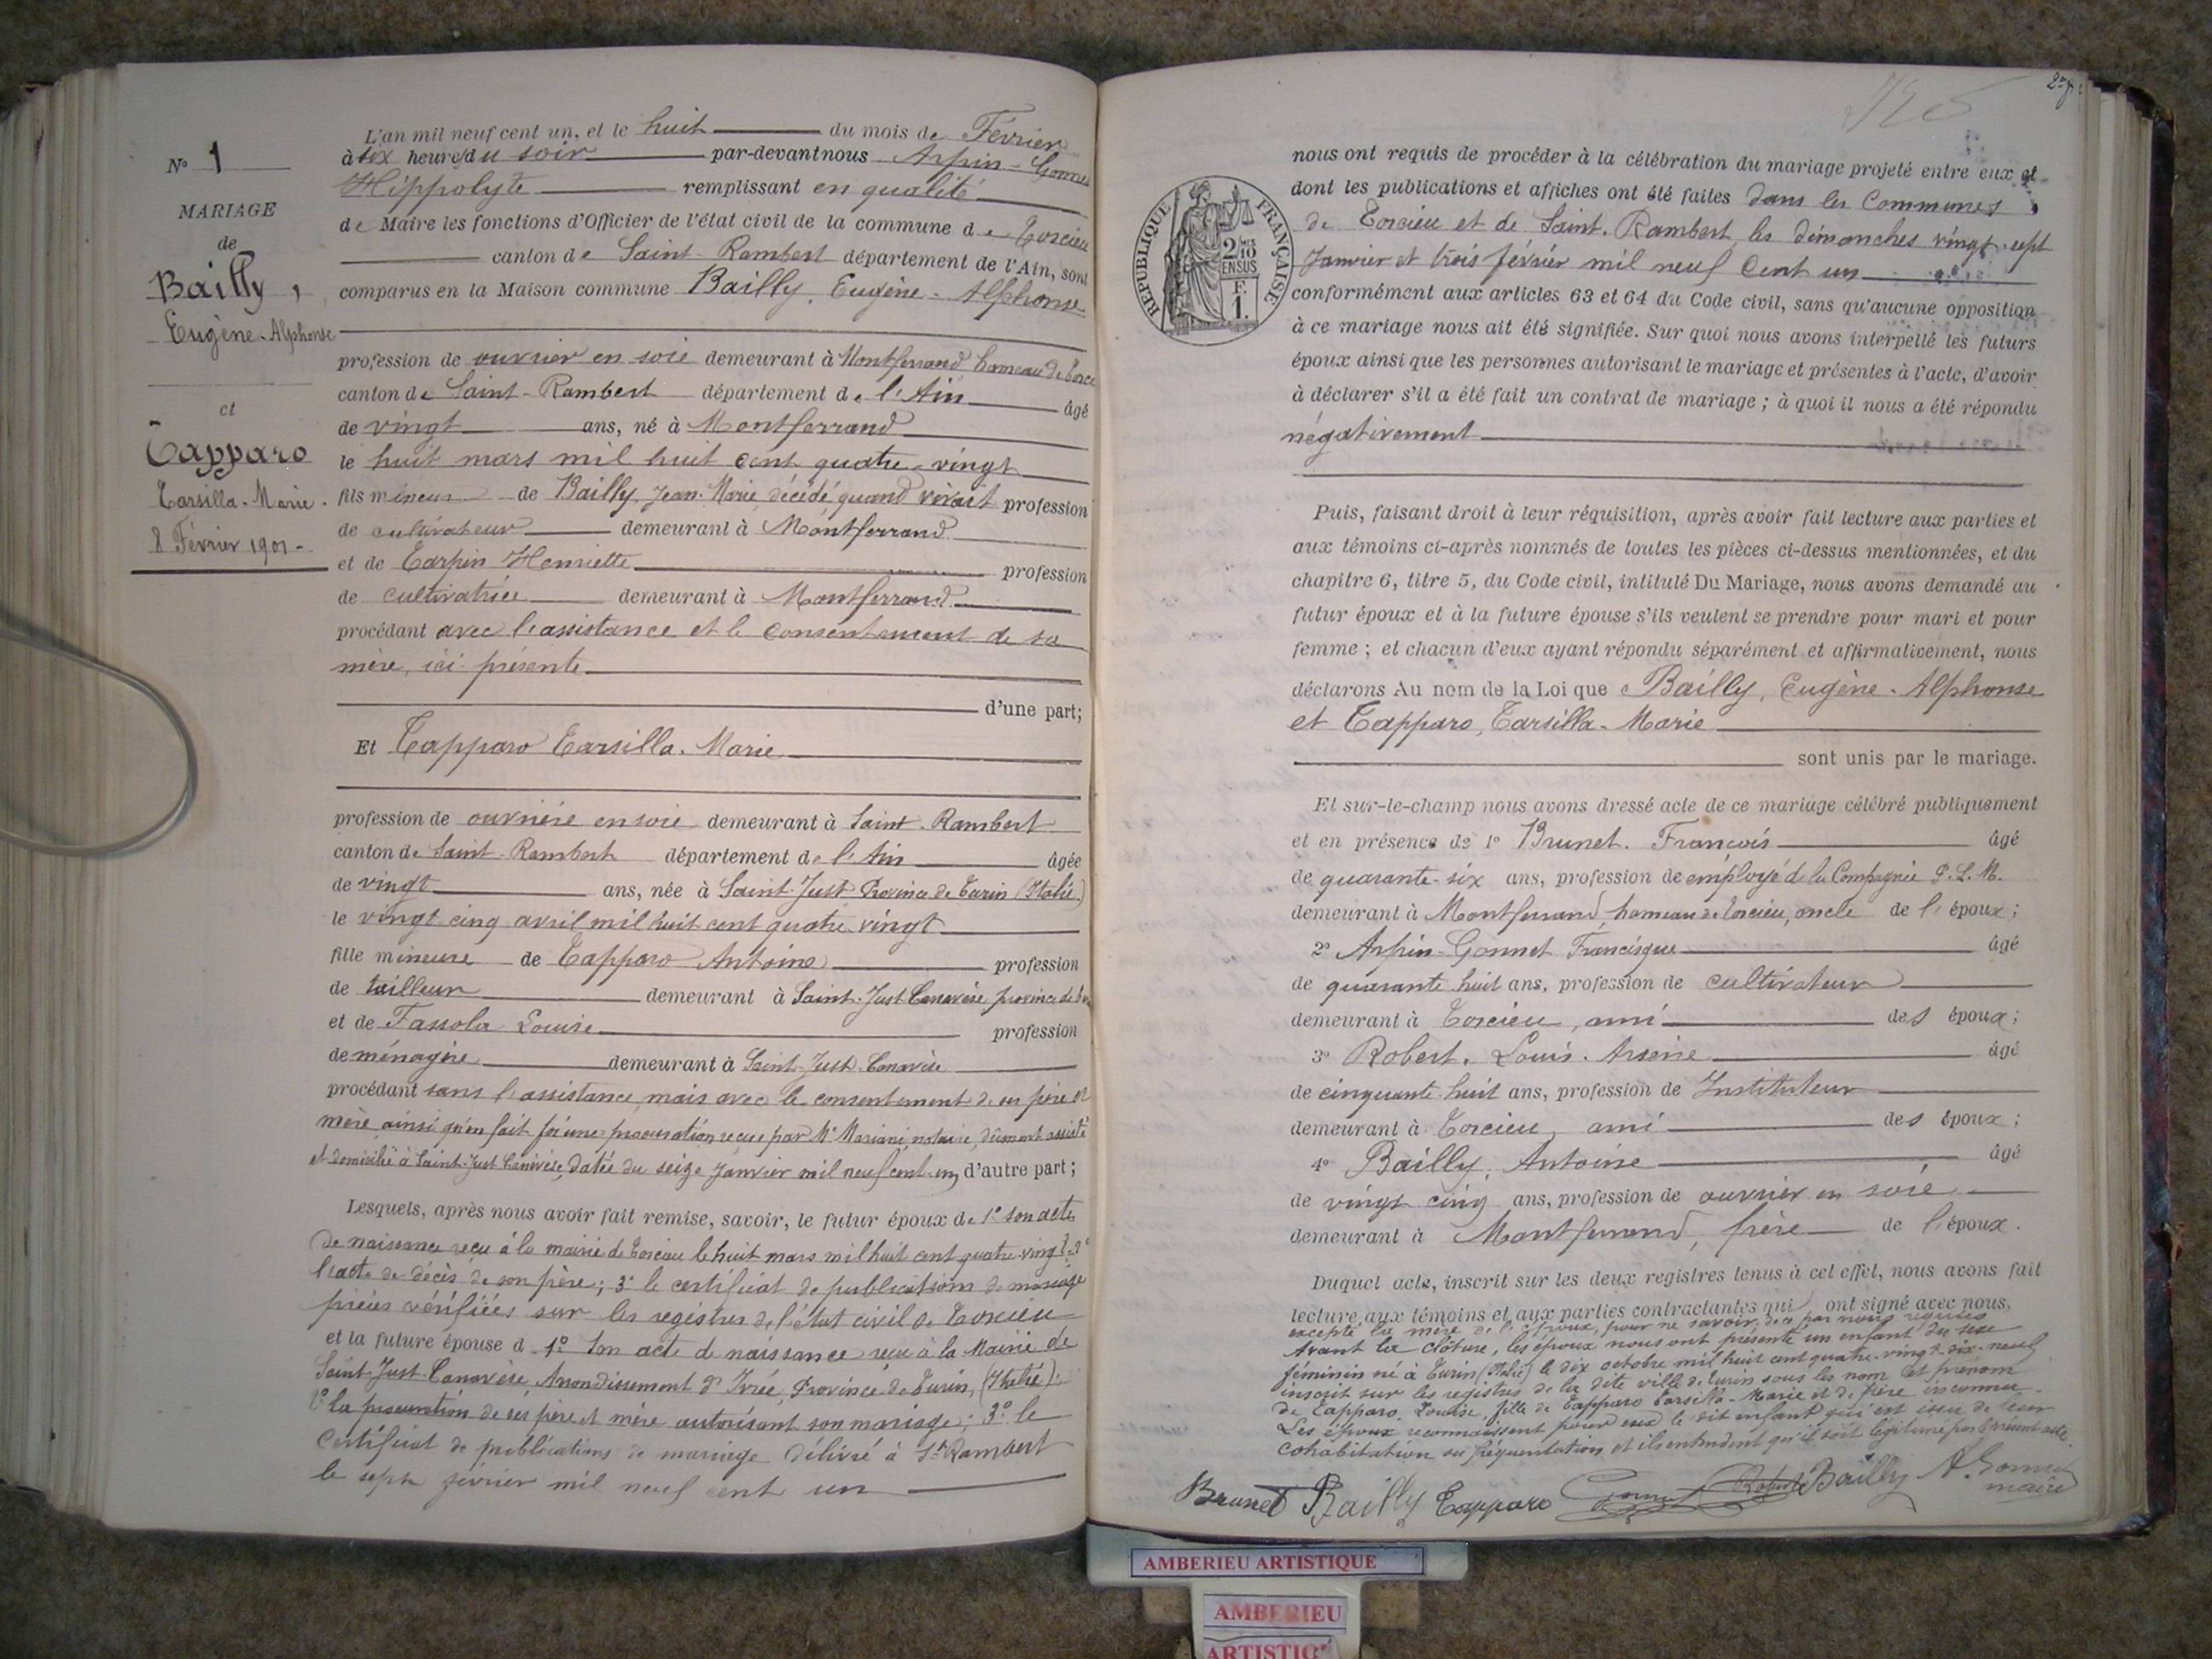 N° 1
MARIAGE
de
Bailly,
Eugène-Alphonse
et
Tapparo
Tarsilla-Marie.
8 Février 1901-
L'an mil neuf cent un, et le huit du mois de Février
à six heures du soir par-devant nous Arpin-Gonnet
Hippolyte remplissant en qualité
de Maire les fonctions d'Officier de l'état civil de la commune de Torcieu
canton de Saint-Rambert département de l'Ain, sont
comparus en la Maison commune Bailly, Eugène-Alphonse
profession de ouvrier en soie demeurant à Montferrand hameau de Torcieu
canton de Saint-Rambert département de l'Ain âgé
de vingt ans, né à Montferrand
le huit mars mil huit cent quatre-vingt
fils mineur de Bailly, Jean-Marie, décédé, quand vivait profession
de cultivateur demeurant à Montferrand
et de Tarpin Henriette profession
de cultivatrice demeurant à Montferrand
procédant avec l'assistance et le consentement de sa
mère, ici présente
d'une part;
Et Tapparo Tarsilla-Marie
profession de ouvrière en soie demeurant à Saint-Rambert
canton de Saint-Rambert département de l'Ain âgée
de vingt ans, née à Saint-Just Province de Turin (Italie)
le vingt cinq avril mil huit cent quatre vingt
fille mineure de Tapparo Antoine profession
de tailleur demeurant à Saint-Just Canavèse province de
et de Fassola Louise profession
de ménagère demeurant à Saint-Just-Canavèse
procédant sans l'assistance, mais avec le consentement de ses père et
mère ainsi qu'en fait foi une procuration reçue par Me Mariani, notaire, dûment assisté
et domicilié à Saint-Just Canavèse, datée du seize Janvier mil neuf cent un, d'autre part;
Lesquels, après nous avoir fait remise, savoir, le futur époux de 1° son acte
de naissance reçu à la mairie de Torcieu le huit mars mil huit cent quatre-vingt; 2°
l'acte de décès de son père; 3° le certificat de publications de mariage
pièces vérifiées sur les registres de l'état civil de Torcieu
et la future épouse d 1° Son acte de naissance reçu à la Mairie de
Saint-Just-Canavèse, Arrondissement d'Ivrée, Province de Turin, (Italie);
2° la procuration de ses père et mère autorisant son mariage; 3° le
Certificat de publications de mariage délivré à St Rambert
le sept février mil neuf cent un
RÉPUBLIQUE FRANÇAISE
2/10 EN SUS
F.
1.
nous ont requis de procéder à la célébration du mariage projeté entre eux et
dont les publications et affiches ont été faites dans les Communes
de Torcieu et de Saint-Rambert, les dimanches vingt-sept
Janvier et trois février mil neuf cent un
conformément aux articles 63 et 64 du Code civil, sans qu'aucune opposition
à ce mariage nous ait été signifiée. Sur quoi nous avons interpellé les futurs
époux ainsi que les personnes autorisant le mariage et présentes à l'acte, d'avoir
à déclarer s'il a été fait un contrat de mariage; à quoi il nous a été répondu
négativement
Puis, faisant droit à leur réquisition, après avoir fait lecture aux parties et
aux témoins ci-après nommés de toutes les pièces ci-dessus mentionnées, et du
chapitre 6, titre 5, du Code civil, intitulé Du Mariage, nous avons demandé au
futur époux et à la future épouse s'ils veulent se prendre pour mari et pour
femme; et chacun d'eux ayant répondu séparément et affirmativement, nous
déclarons Au nom de la Loi que Bailly, Eugène-Alphonse
et Tapparo, Tarsilla-Marie
sont unis par le mariage.
Et sur-le-champ nous avons dressé acte de ce mariage célébré publiquement
et en présence de 1° Brunet. François âgé
de quarante-six ans, profession de employé de la Compagnie P.L.M.
demeurant à Montferrand, hameau de Torcieu, oncle de l'époux;
2° Arpin-Gonnet Francisque âgé
de quarante huit ans, profession de cultivateur
demeurant à Torcieu, ami des époux;
3° Robert. Louis. Arsène âgé
de cinquante-huit ans, profession de Instituteur
demeurant à Torcieu, ami des époux;
4° Bailly, Antoine âgé
de vingt cinq ans, profession de ouvrier en soie
demeurant à Montferrand, frère de l'époux.
Duquel acte, inscrit sur les deux registres tenus à cet effet, nous avons fait
lecture aux témoins et aux parties contractantes qui ont signé avec nous,
excepté la mère de l'époux, pour ne savoir, de ce par nous requise
Avant la clôture, les époux nous ont présenté un enfant du sexe
féminin né à Turin (Italie) le dix octobre mil huit cent quatre-vingt-dix-neuf
inscrit sur les registres de la dite ville de Turin sous les nom et prénom
de Tapparo, Louise, fille de Tapparo Tarsilla-Marie et de père inconnu.
Les époux reconnaissent pour eux le dit enfant qui est issu de leur
cohabitation ou fréquentation et ils entendent qu'il soit légitimé par le présent acte.
Brunet Bailly Tapparo Gonnet Robert Bailly A. Gonnet
maire
AMBERIEU ARTISTIQUE
AMBERIEU
ARTISTIQ